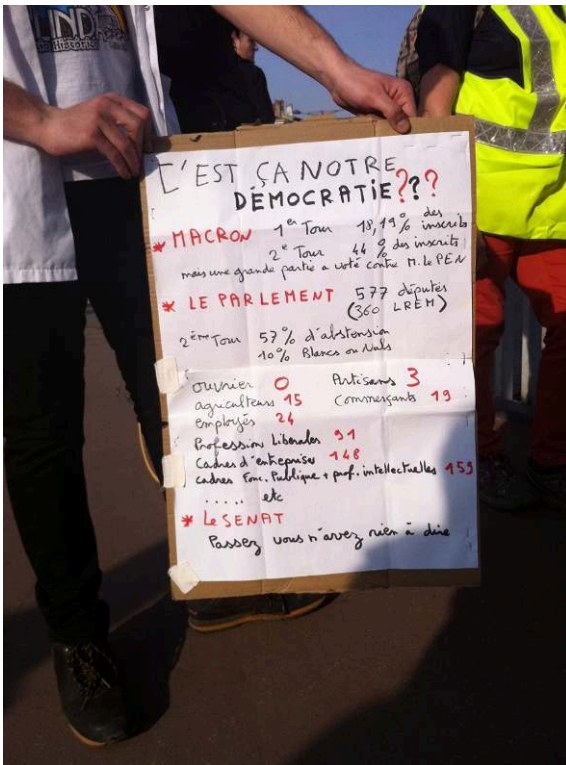 C'EST ÇA NOTRE
DÉMOCRATIE???
* MACRON 1er Tour 18,19% des inscrits
2e Tour 44% des inscrits
mais une grande partie a voté contre M. le PEN
* LE PARLEMENT 577 députés
(360 LREM)
2ème Tour 57% d'abstension
10% Blancs ou Nuls
ouvrier 0 Artisans 3
agriculteurs 15 Commerçants 19
employés 24
Profession Libérales 91
Cadres d'entreprises 148
cadres Fonc. Publique + prof. intellectuelles 159
..... etc
* Le SENAT
Passez vous n'avez rien à dire